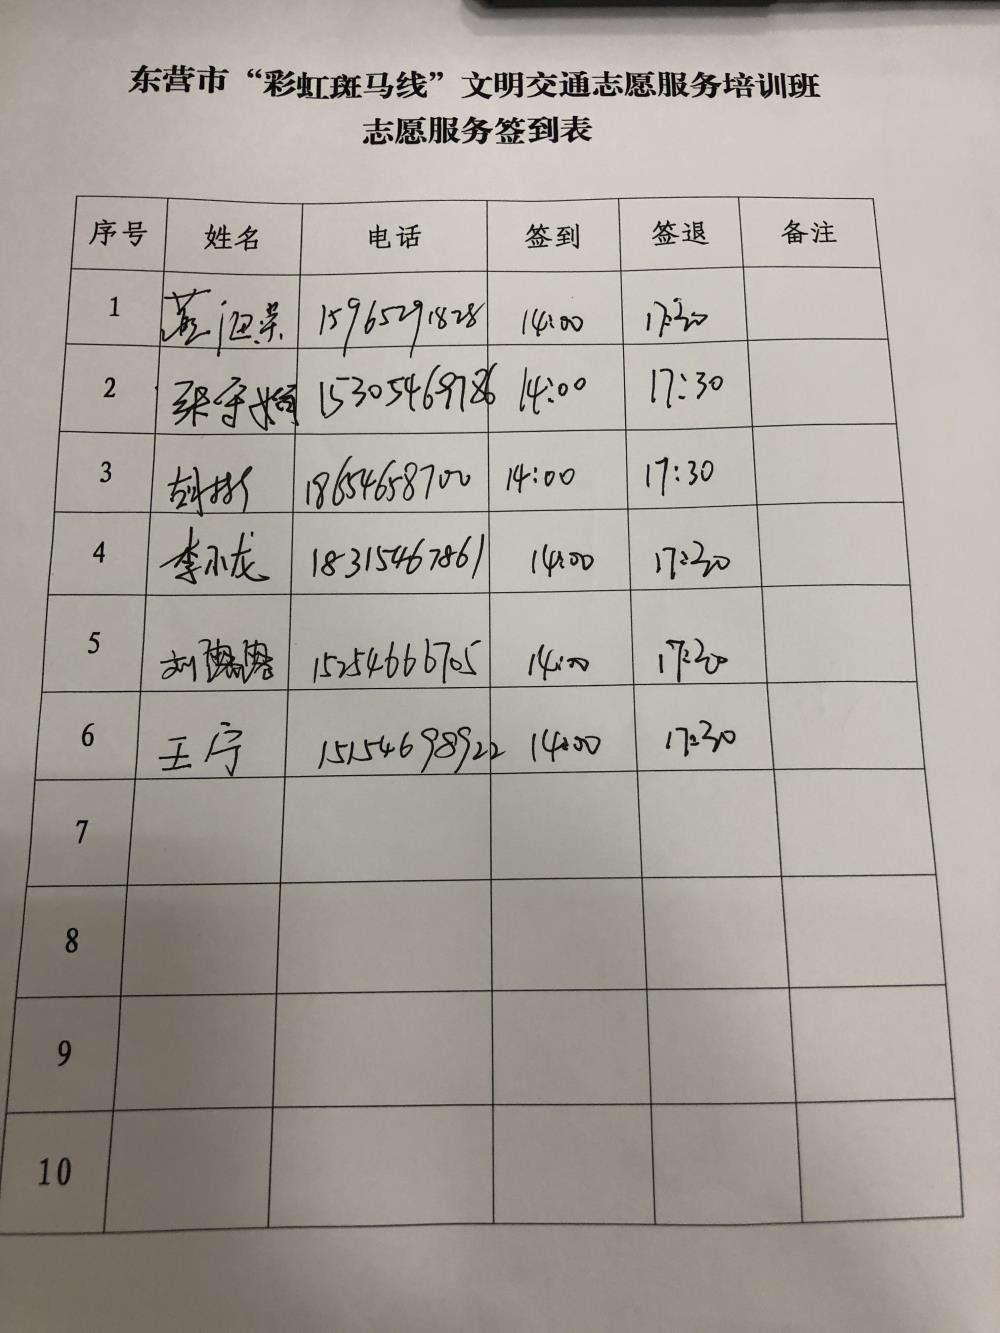 东营市“彩虹斑马线”文明交通志愿服务培训班
志愿服务签到表
序号 姓名 电话 签到 签退 备注
1 15965291828 14:00 17:30
2 张守娟 15305469786 14:00 17:30
3 18654658700 14:00 17:30
4 李小龙 18315467861 14:00 17:30
5 刘 15254666705 14:00 17:30
6 王宁 15154698922 14:00 17:30
7
8
9
10